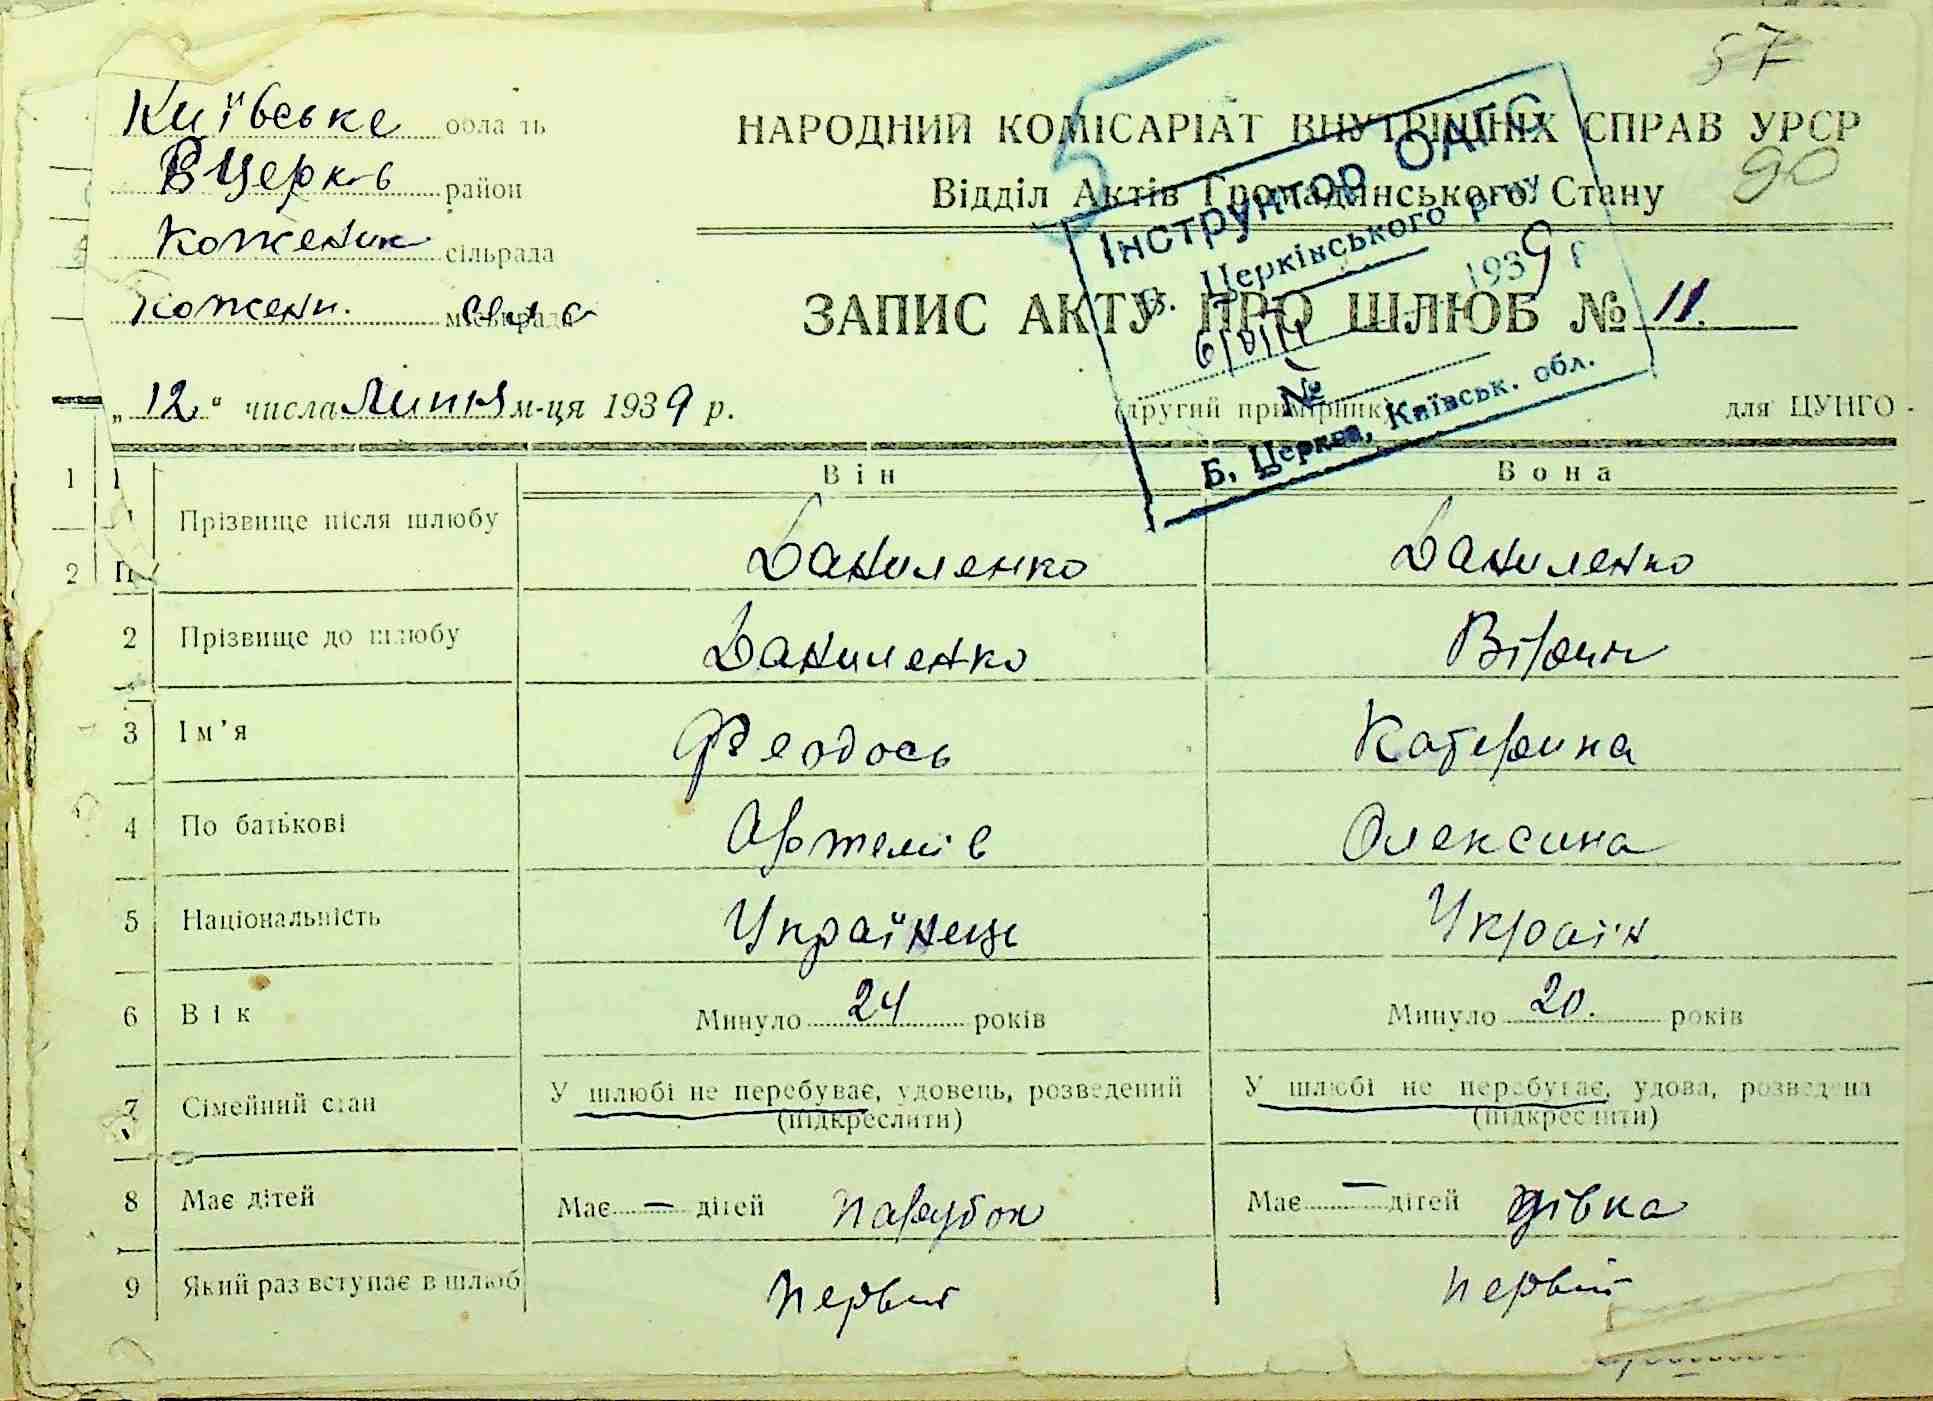 57
Київське область
НАРОДНИЙ КОМІСАРІАТ ВНУТРІШНІХ СПРАВ УРСР
90
БЦерків район
Відділ Актів Громадянського Стану
Коженик сільрада
Кожени. міськрада
ЗАПИС АКТУ ПРО ШЛЮБ № 11.
„12“ числа Липня м-ця 1939 р.
(другий примірник)
для ЦУНГО
Інструктор ОАГС
Б. Церківського р-ну
1939 р
№
Б. Церква, Київськ. обл.
Він Вона
1 Прізвище після шлюбу Даниленко Даниленко
2 Прізвище до шлюбу Даниленко
3 Ім’я Феодось Катерина
4 По батькові Артемів Олексина
5 Національність Українець Україн
6 Вік Минуло 24 років Минуло 20. років
7 Сімейний стан У шлюбі не перебуває, удовець, розведений У шлюбі не перебуває, удова, розведена
(підкреслити) (підкреслити)
8 Має дітей Має — дітей парубок Має — дітей дівка
9 Який раз вступає в шлюб первий первий